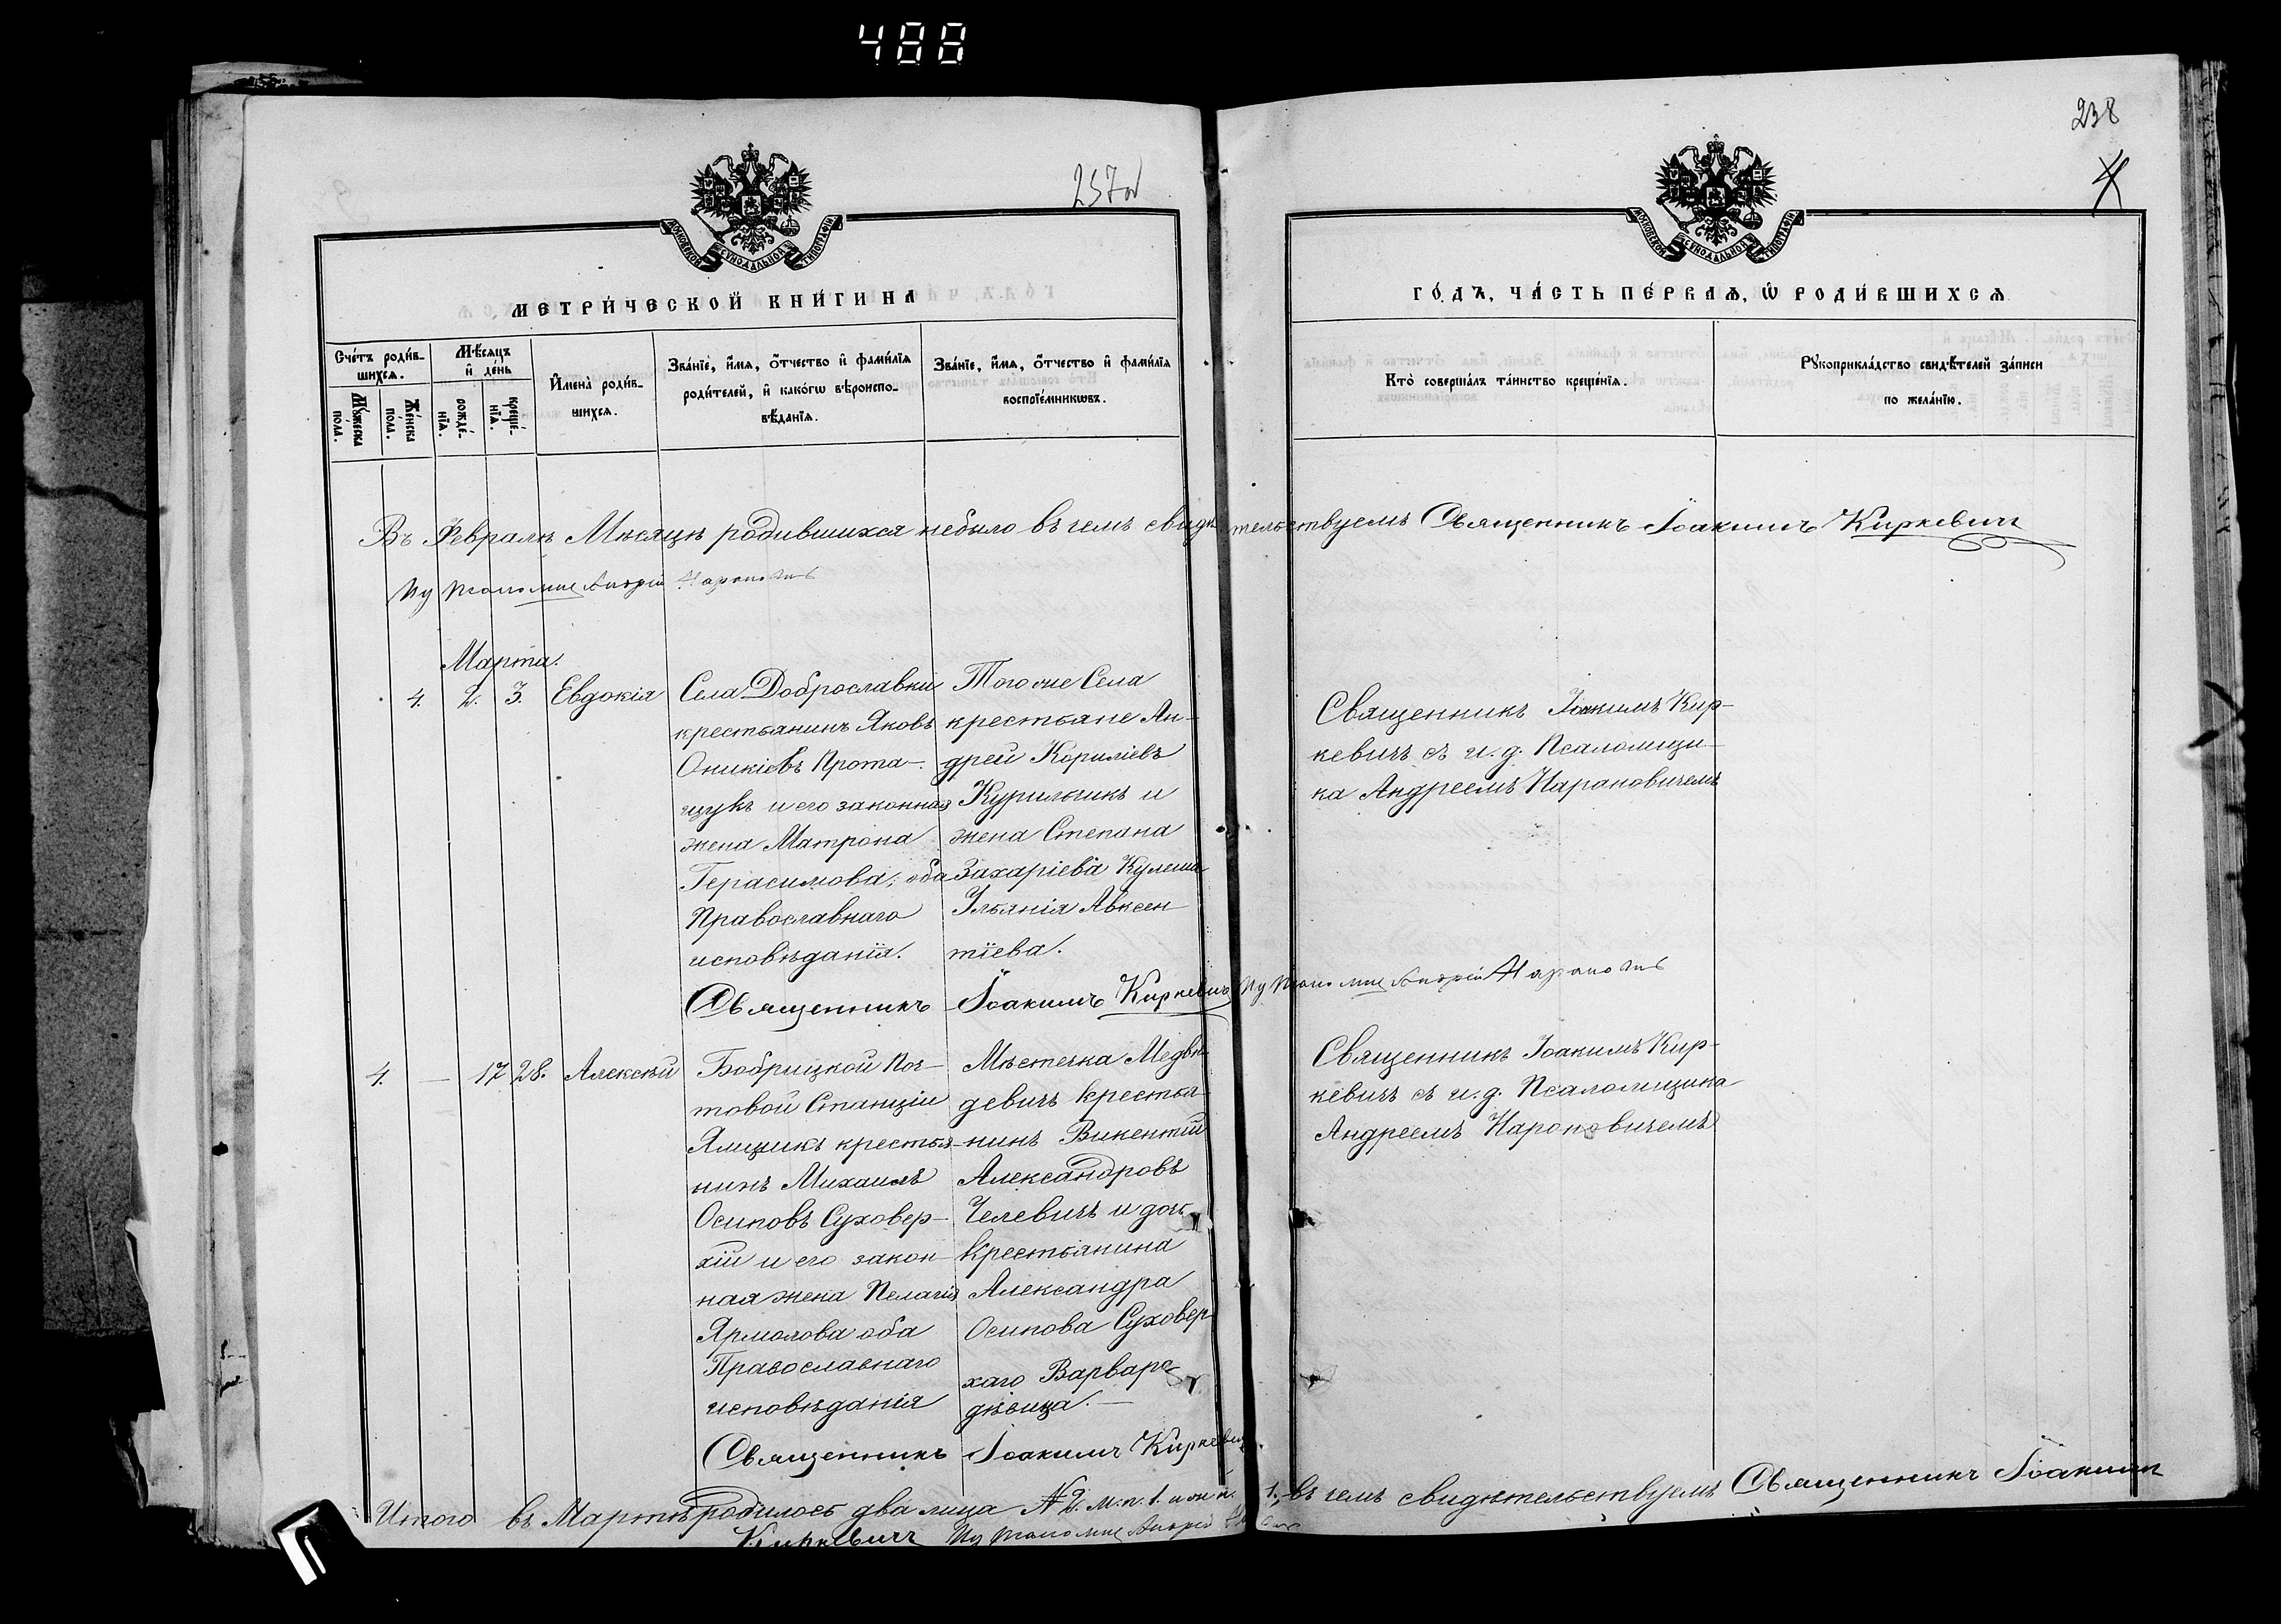 488
238
257об
4
МОСКОВСКОЙ СУНОДАЛЬНОЙ ТИПОГРАФІИ
МОСКОВСКОЙ СУНОДАЛЬНОЙ ТИПОГРАФІИ
МЕТРИ́ЧЕСКОЙ КНИ́ГИ НА
ГО́ДЪ, ЧА́СТЬ ПЕ́РВАѦ, Ѡ҆ РОДИ́ВШИХСѦ
Сче́тъ роди́в-
шихсѧ.
Мꙋ́жеска по́ла.
Же́нска по́ла.
Мѣ́сѧцъ и҆ де́нь
рожде́-нїѧ.
креще́-нїѧ.
И҆мена̀ роди́в-
шихсѧ.
Зва́нїе, и҆́мѧ, ѻ҆́тчество и҆ фами́лїѧ
роди́телей, и҆ како́гѡ вѣроиспо-
вѣ́данїѧ.
Зва́нїе, и҆́мѧ, ѻ҆́тчество и҆ фами́лїѧ
воспрїе́мникѡвъ.
Кто̀ соверша́лъ та́инство креще́нїѧ.
Рꙋкоприкла́дство свидѣ́телей за́писи
по жела́нїю.
Въ Февралѣ Мѣсяцѣ родившихся небыло въ чемъ свидѣтельствуемъ Священникъ Іоакимъ Киркевичъ
Андрей
Марта.
4. 2. 3. Евдокія
Села Доброславки
крестьянинъ Яковъ
Оникіевъ Прота-
щукъ и его законная
жена Матрона
Герасимова, оба
Православнаго
исповѣданія.
Того же Села
крестьяне Ан-
дрей Кориліевъ
Курильчикъ и
жена Степана
Захаріева Кулеша
Ульянія Авксен-
тіева.
Священникъ Іоакимъ Кир-
кевичъ съ и.д. Псаломщи-
ка Андреемъ Нарановичемъ
Священникъ Іоакимъ Киркевичъ Андрей
4. — 17 28. Алексѣй
Бобрицкой Поч-
товой Станціи
Ямщикъ крестья-
нинъ Михаилъ
Осиповъ Суховер-
хій и его закон-
ная жена Пелагія
Ярмолова оба
Православнаго
исповѣданія
Мѣстечка Медвѣ-
девичъ крестья-
нинъ Викентій
Александровъ
Челевичъ и дочь
Крестьянина
Александра
Осипова Суховер-
хаго Варвара
дѣвица. —
Священникъ Іоакимъ Кир-
кевичъ съ и.д. Псаломщика
Андреемъ Нарановичемъ
Священникъ Іоакимъ Киркевичъ
Итого въ Мартѣ родилось два лица № 2. м.п. 1. и ж. п. 1, въ чемъ свидѣтельствуемъ Священникъ Іоакимъ
Киркевичъ Андрей